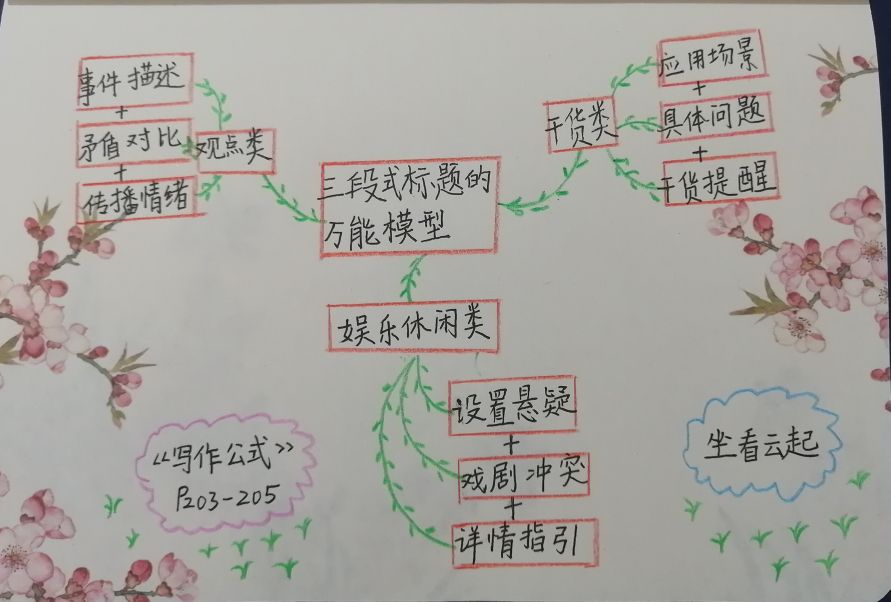 三段式标题的
万能模型
观点类
事件描述
+
矛盾对比
+
传播情绪
干货类
应用场景
+
具体问题
+
干货提醒
娱乐休闲类
设置悬疑
+
戏剧冲突
+
详情指引
《写作公式》
P203-205
坐看云起